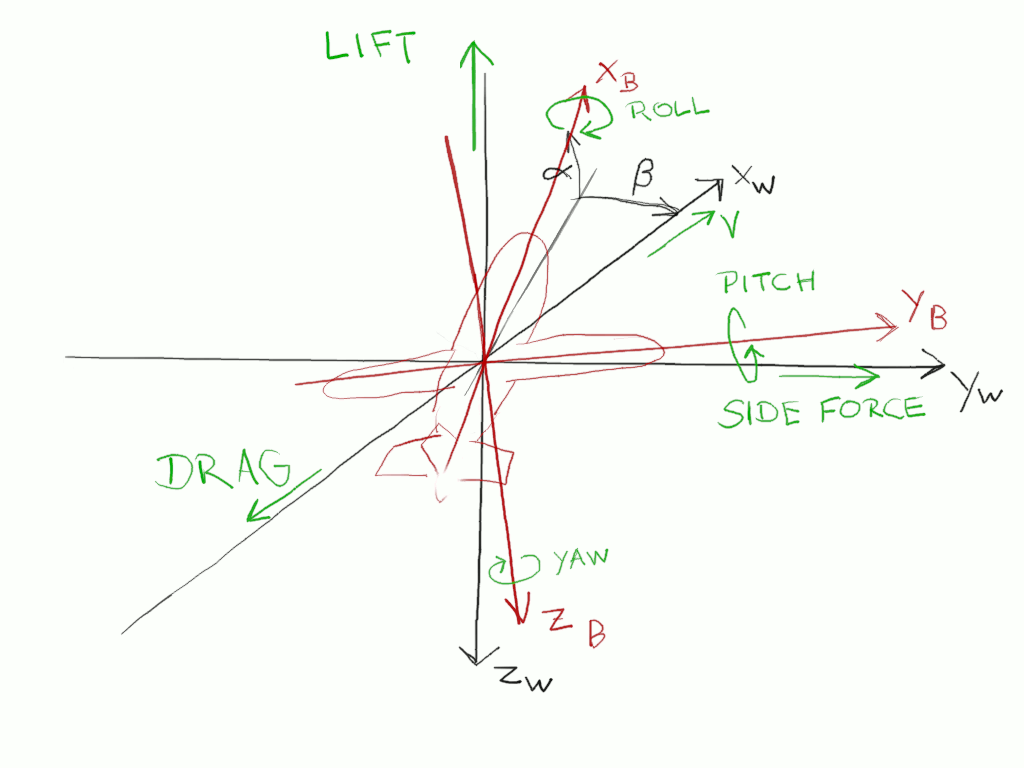 LIFT
XB
ROLL
α
β
XW
V
PITCH
YB
YW
SIDE FORCE
DRAG
YAW
ZB
ZW